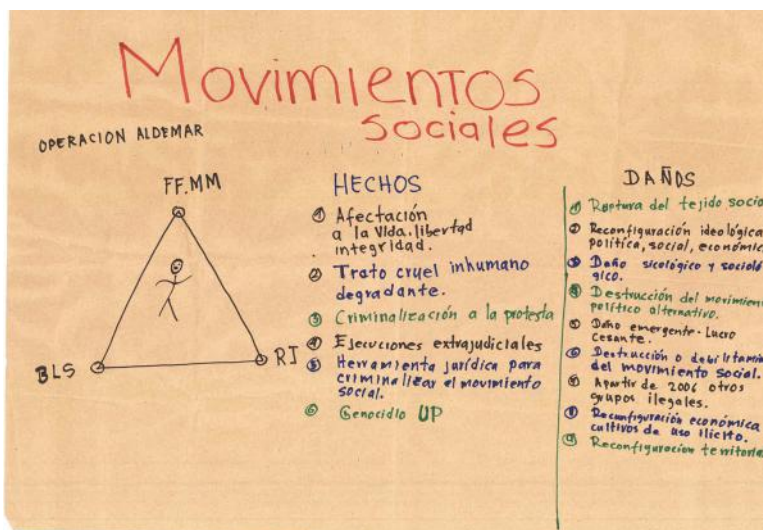 Movimientos
sociales
OPERACION ALDEMAR
FF.MM
BLS
RJ
HECHOS
① Afectación
a la vida, libertad
integridad.
② Trato cruel inhumano
degradante.
③ Criminalización a la protesta
④ Ejecuciones extrajudiciales
⑤ Herramienta jurídica para
criminalizar el movimiento
social.
⑥ Genocidio UP
DAÑOS
① Ruptura del tejido socia
② Reconfiguración ideológica
política, social, económic
③ Daño sicológico y sociolo
gico.
④ Destrucción del movimien
político alternativo.
⑤ Daño emergente - Lucro
cesante.
⑥ Destrucción o debilitamie
del movimiento social.
Apartir de 2006 otros
grupos ilegales.
⑧ Reconfiguración económica
cultivos de uso ilicito.
⑨ Reconfiguracion territoria